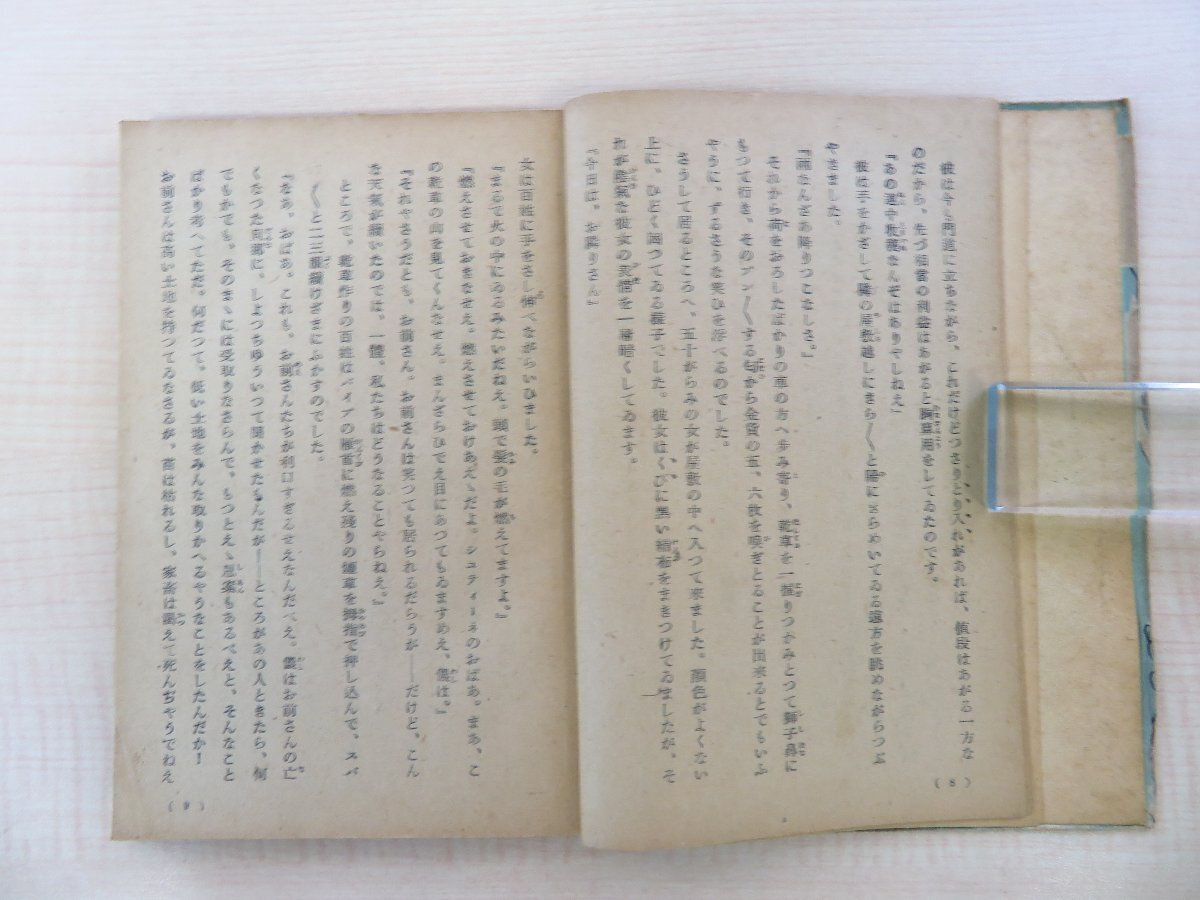 彼は今も門邊に立ちながら、これだけどつさりとり入れがあれば、値段はあがる一方な
のだから、先づ相當の利益はあがると胸算用をしてゐたのです。
『あの連中乾草なんぞはありやしねえ』
彼は手をかざして隣の屋根越しにきら〳〵と陽にきらめいてゐる遠方を眺めながらつぶ
やきました。
『雨なんざあ降りつこなしさ。』
それから荷をおろしたばかりの車の方へ歩み寄り、乾草を一握りつかみとつて獅子鼻に
もつて行き、そのプン〳〵する匂から金貨の五、六枚を嗅ぎとることが出來るとでもいふ
やうに、ずるさうな笑ひを浮べるのでした。
さうして居るところへ、五十がらみの女が屋敷の中へ入つて來ました。顏色がよくない
上に、ひどく困つてゐる樣子でした。彼女はくびに黑い をまきつけてゐましたが、そ
れが陰氣な彼女の表情を一層暗くしてゐます。
『今日は、お隣りさん』
(8)
女は百姓に手をさし伸べながらいひました。
『まるで火の中にゐるみたいだねえ。頭で髮の毛が燃えてますよ。』
『燃えさせておきなせえ。燃えさせておけあえゝだよ。シユティーネのおばあ。まあ、こ
の乾草の山を見てくんなせえ。まんざらひでえ目にあつてもゐますめえ、儂は。』
『それやさうだとも、お前さん。お前さんは笑つても居られるだらうが――だけど、こん
な天氣が續いたのでは、一體、私たちはどうなることやらねえ。』
ところで、乾草作りの百姓はパイプの雁首に燃え殘りの煙草を拇指で押し込んで、スパ
〳〵と二三 續けさまにふかすのでした。
『なあ、おばあ。これも、お前さんたちが利口すぎるせえなんだべえ。儂はお前さんの亡
くなつた旦那に、しよつちゆういつて聞かせたもんだが――ところがあの人ときたら、何
でもかでも、そのまゝには受取りなさらんで、もつとえゝ思案もあるべえと、そんなこと
ばかり考へてただ。何だつて、低い土地をみんな取りかへるやうなことをしたんだか！
お前さんは高い土地を持つてゐなさるが、苗は枯れるし、家畜は饑えて死んぢやうでねえ
(9)